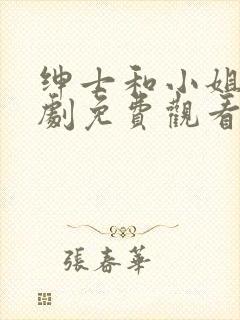 绅士和小姐
劇免費觀看
張春華